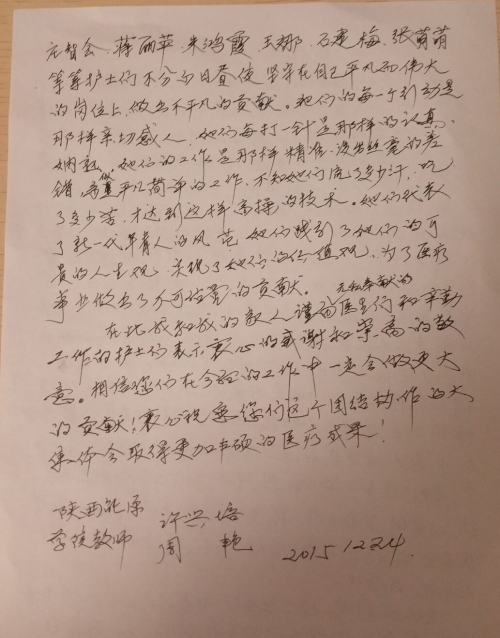 庄智会、蒋丽苹、朱鸿霞、王娜、石建梅、张萌萌
等等护士们不分白日昼夜坚守在自己平凡而伟大
的岗位上,做出不平凡的贡献。她们的每一个行动是
那样亲切感人,她们每打一针是那样的认真、
娴熟。她们的工作是那样精准,没有丝毫的差
错,看似平凡简单的工作,不知她们流了多少汗,吃
了多少苦,才达到这样高操的技术。她们代表
了新一代年青人的风范,她们践引了她们的可
贵的人生观,实现了她们的价值观,为了医疗
事业做出了不可估量的贡献。
在此我和我的家人谨向无私奉献的医生们和辛勤
工作的护士们表示衷心的感谢和崇高的敬
意。相信你们在今后的工作中一定会做更大
的贡献!衷心祝愿你们这个团结协作的大
集体会取得更加丰硕的医疗成果!
陕西能源
学院教师 许兴培
周艳 2015 12 24.